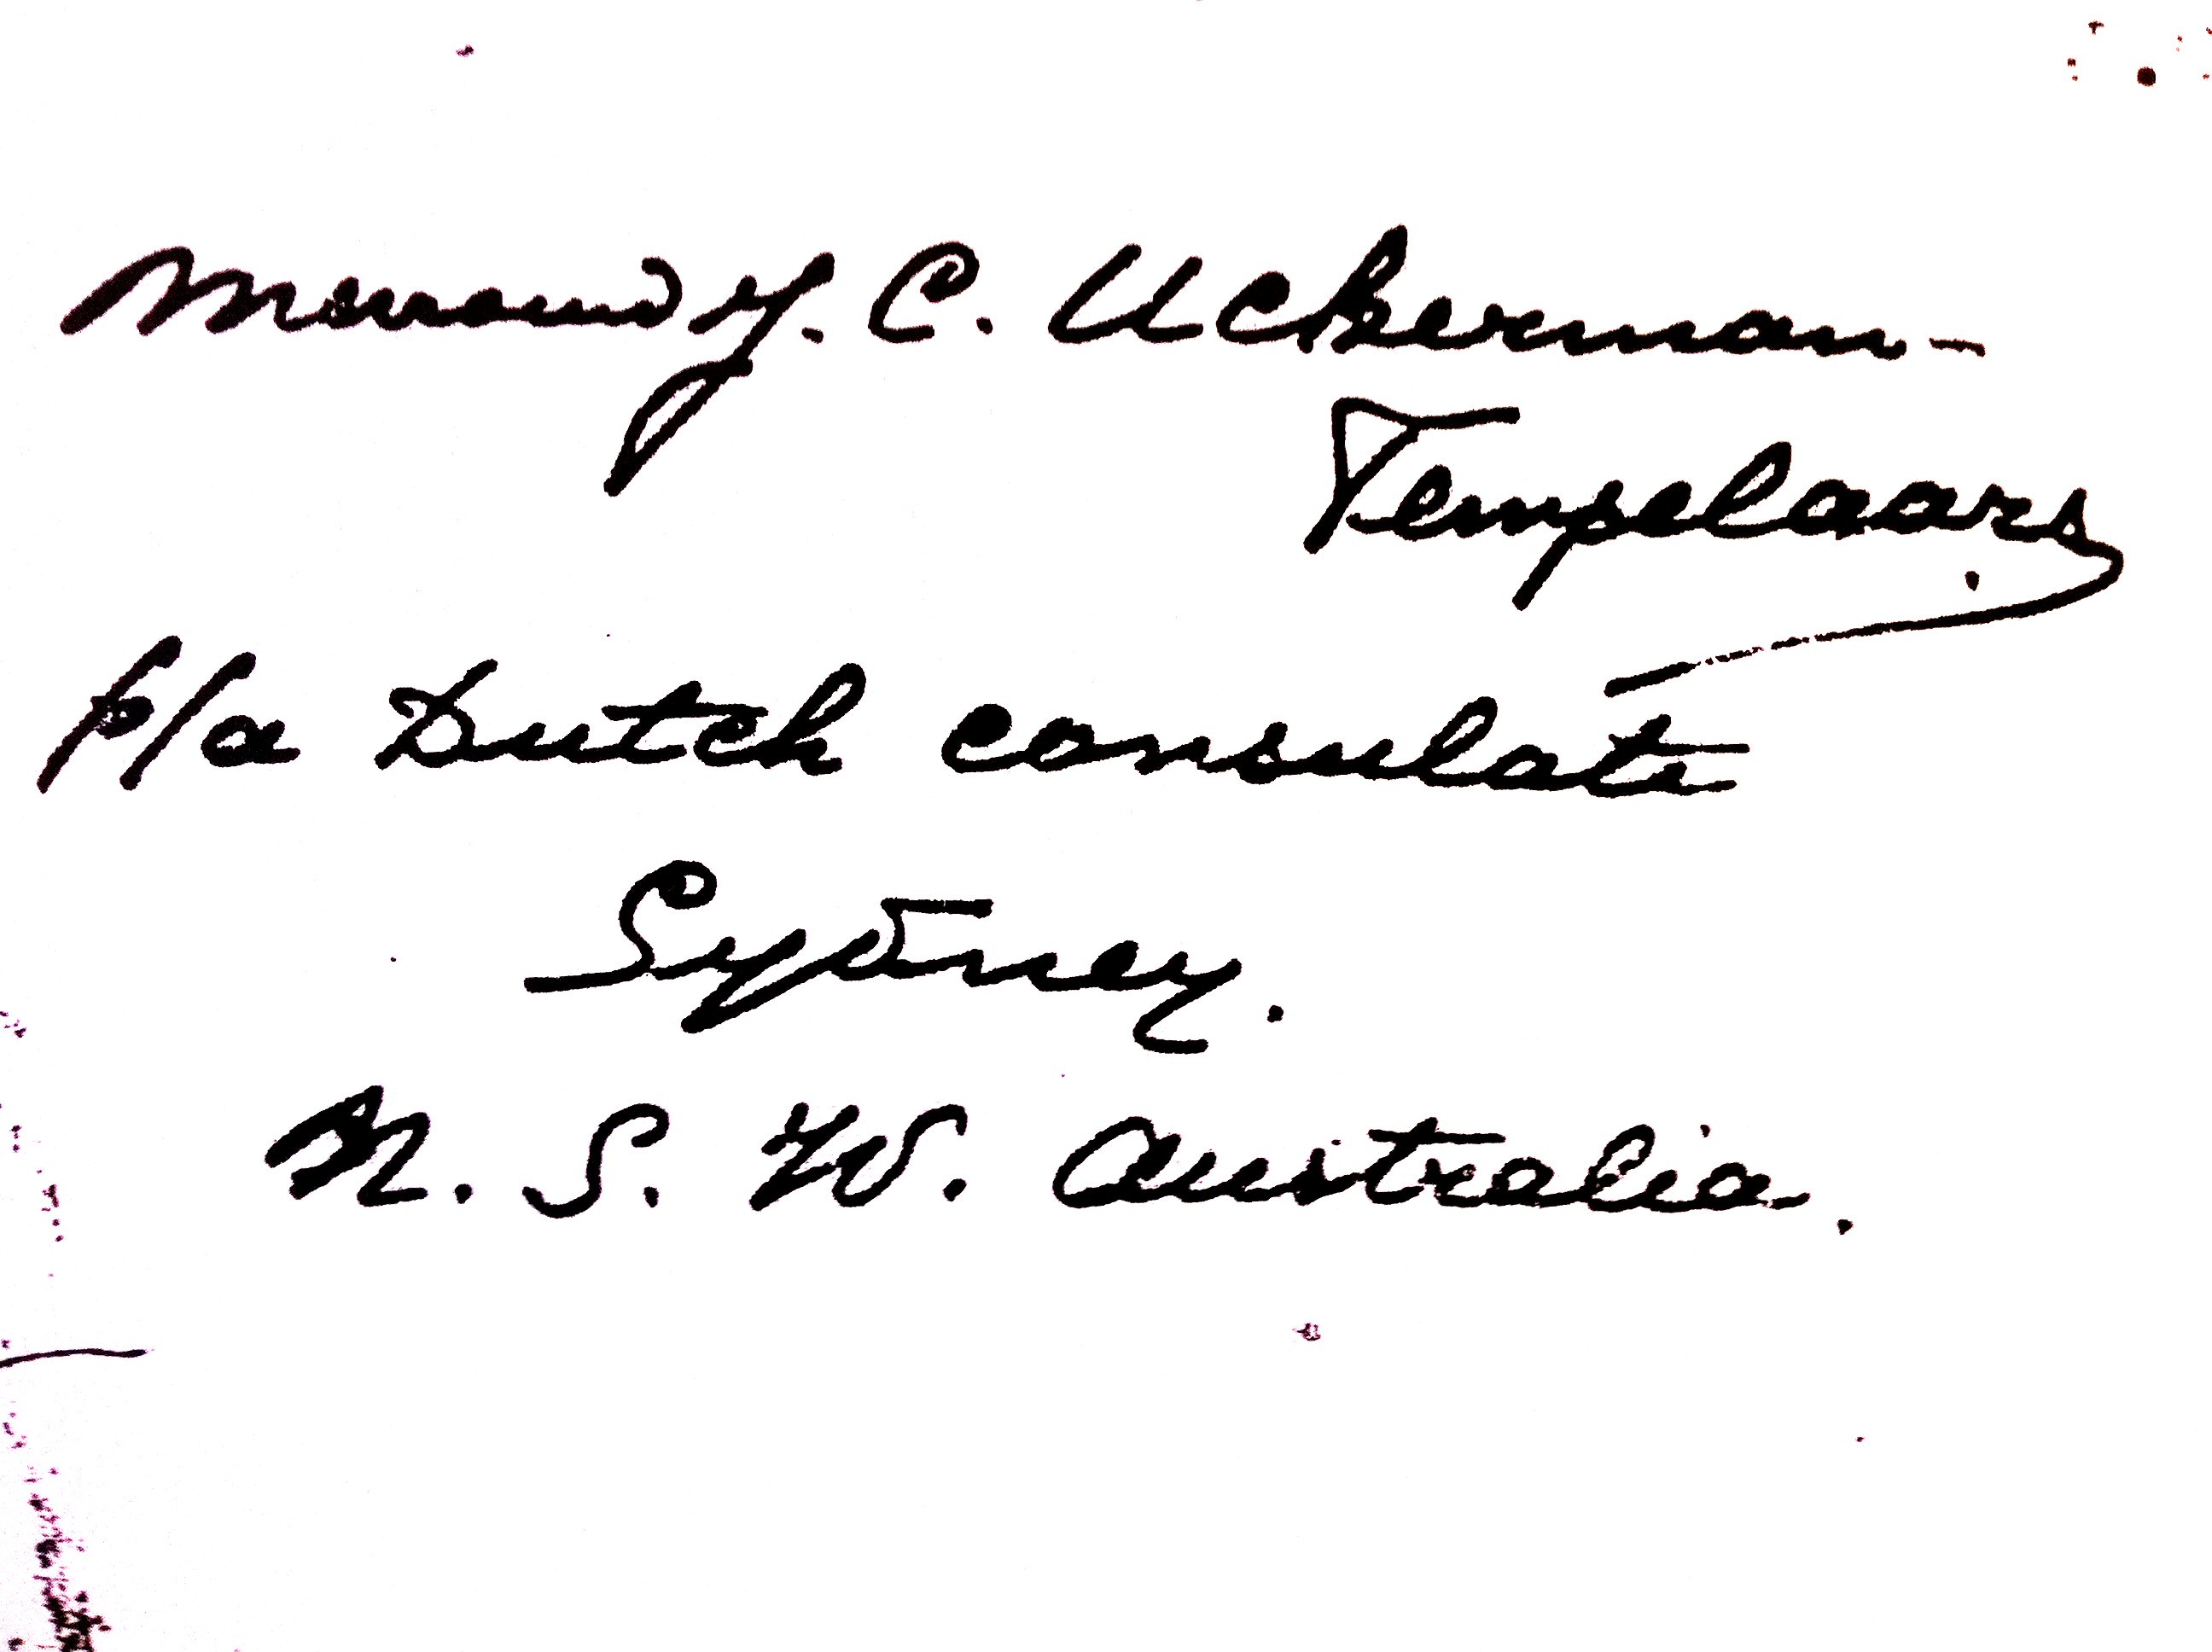 Mevrouw Y. C. Uckerman-
Tempelaars
p/a Dutch consulate
Sydney.
N. S. W. Australia.